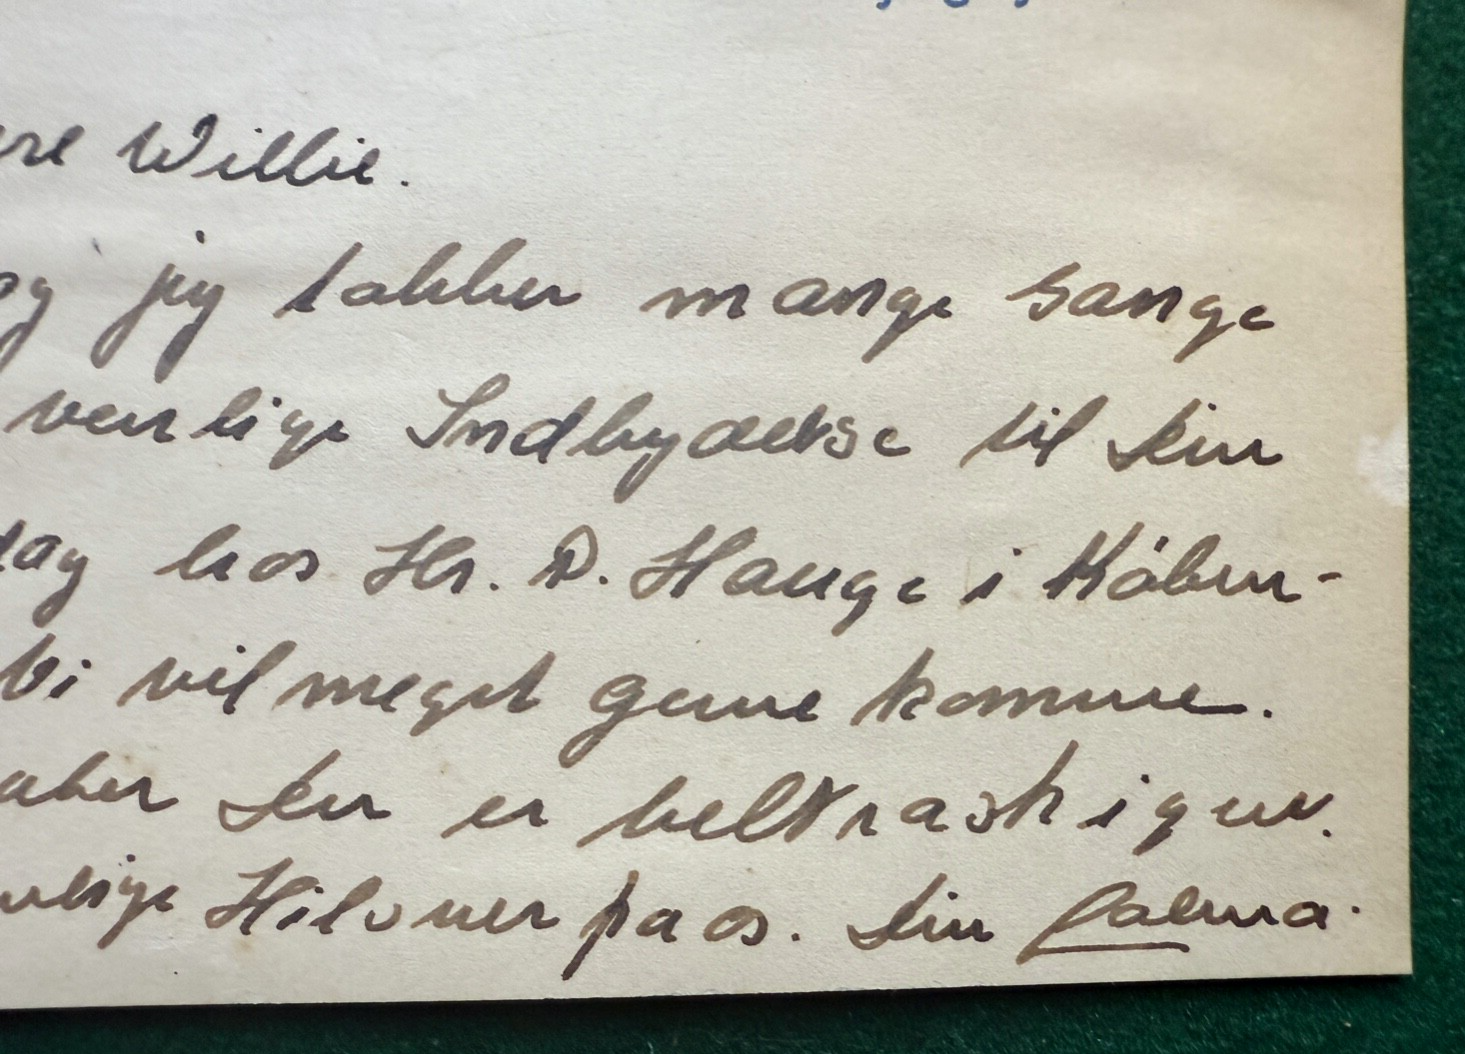 Willie.
og jeg takker mange Gange
venlige Indbydelse til Din
dag hos Hr. P. Hauge i Köben-
Vi vil meget gerne komme.
aber Du er helt rask igen.
Hilsner fra os. Din Palma.